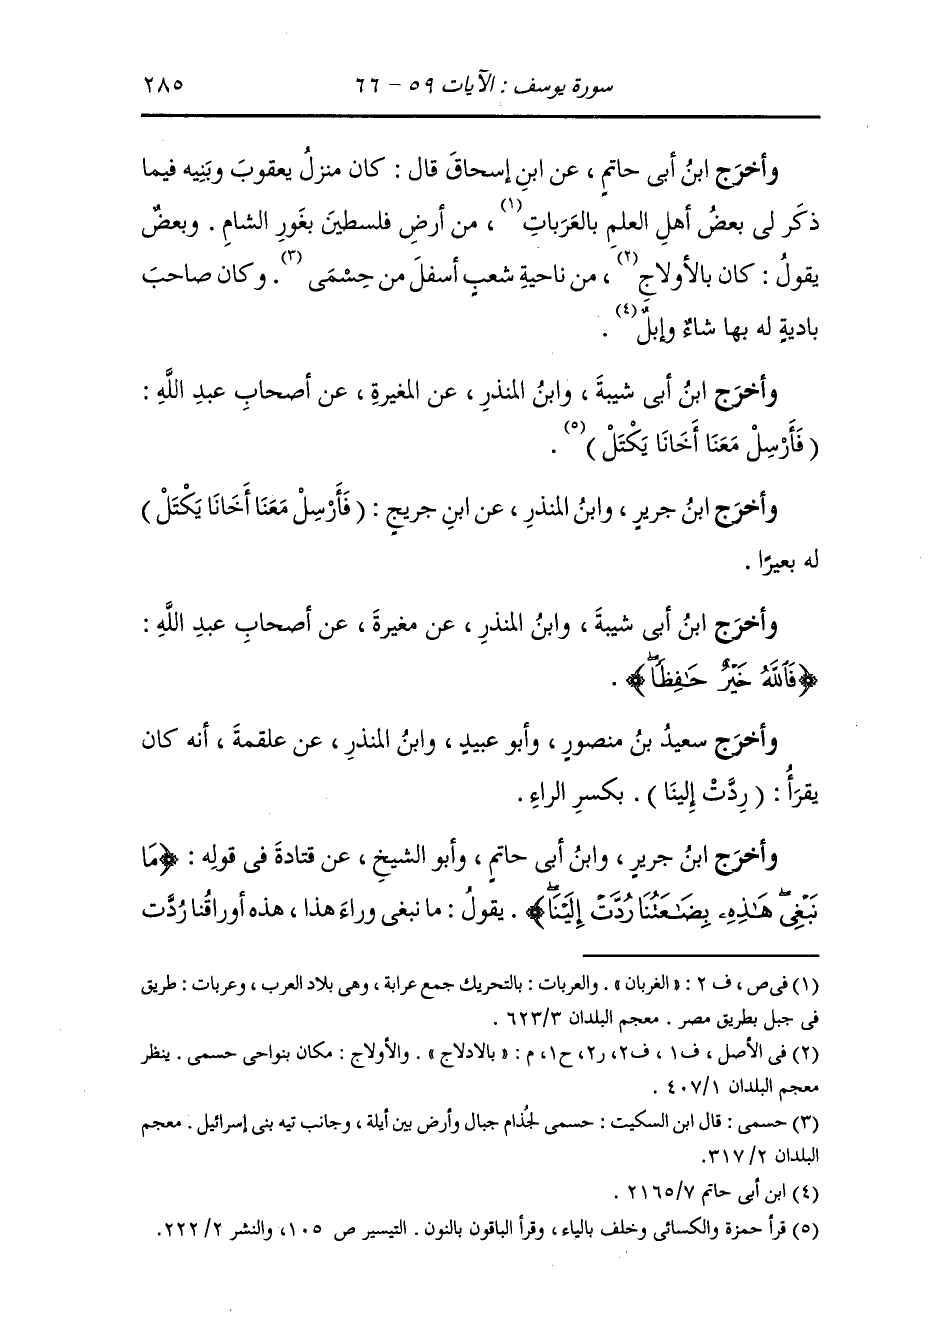 سورة يوسف : الآيات ٥٩ - ٦٦ ٢٨٥
وأخرَج ابنُ أبى حاتمٍ ، عن ابنِ إسحاقَ قال : كان منزلُ يعقوبَ وبَنِيه فيما
ذكَر لى بعضُ أهلِ العلمِ بالعَرَباتِ(١) ، من أرضِ فلسطينَ بغَورِ الشامِ . وبعضٌ
يقولُ : كان بالأولاجِ(٢) ، من ناحيةِ شعبٍ أسفلَ من حِسْمَى(٣) . وكان صاحبَ
باديةٍ له بها شاءٌ وإبلٌ(٤) .
وأخرَج ابنُ أبى شيبةَ ، وابنُ المنذرِ ، عن المغيرةِ ، عن أصحابِ عبدِ اللَّهِ :
( فَأَرْسِلْ مَعَنَا أَخَانَا يَكْتَلْ )(٥) .
وأخرَج ابنُ جريرٍ ، وابنُ المنذرِ ، عن ابنِ جريجٍ : ( فَأَرْسِلْ مَعَنَا أَخَانَا يَكْتَلْ )
له بعيرًا .
وأخرَج ابنُ أبى شيبةَ ، وابنُ المنذرِ ، عن مغيرةَ ، عن أصحابِ عبدِ اللَّهِ :
﴿فَٱللَّهُ خَيْرٌ حَـٰفِظًاۖ﴾ .
وأخرَج سعيدُ بنُ منصورٍ ، وأبو عبيدٍ ، وابنُ المنذرِ ، عن علقمةَ ، أنه كان
يقرَأُ : ( رِدَّتْ إِلينَا ) . بكسرِ الراءِ .
وأخرَج ابنُ جريرٍ ، وابنُ أبى حاتمٍ ، وأبو الشيخِ ، عن قتادةَ فى قولِه : ﴿مَا
نَبْغِىۖ هَـٰذِهِۦ بِضَـٰعَتُنَا رُدَّتْ إِلَيْنَاۖ﴾ . يقولُ : ما نبغى وراءَ هذا ، هذه أوراقُنا رُدَّت
(١) فى ص ، ف ٢ : « الغربان » . والعربات : بالتحريك جمع عرابة ، وهى بلاد العرب ، وعربات : طريق
فى جبل بطريق مصر . معجم البلدان ٦٢٣/٣ .
(٢) فى الأصل ، ف١ ، ف٢، ر٢، ح١، م : « بالادلاج » . والأولاج : مكان بنواحى حسمى . ينظر
معجم البلدان ٤٠٧/١ .
(٣) حسمى : قال ابن السكيت : حسمى لجُذام جبال وأرض بين أيلة ، وجانب تيه بنى إسرائيل . معجم
البلدان ٣١٧/٢.
(٤) ابن أبى حاتم ٢١٦٥/٧ .
(٥) قرأ حمزة والكسائى وخلف بالياء ، وقرأ الباقون بالنون . التيسير ص ١٠٥، والنشر ٢٢٢/٢.